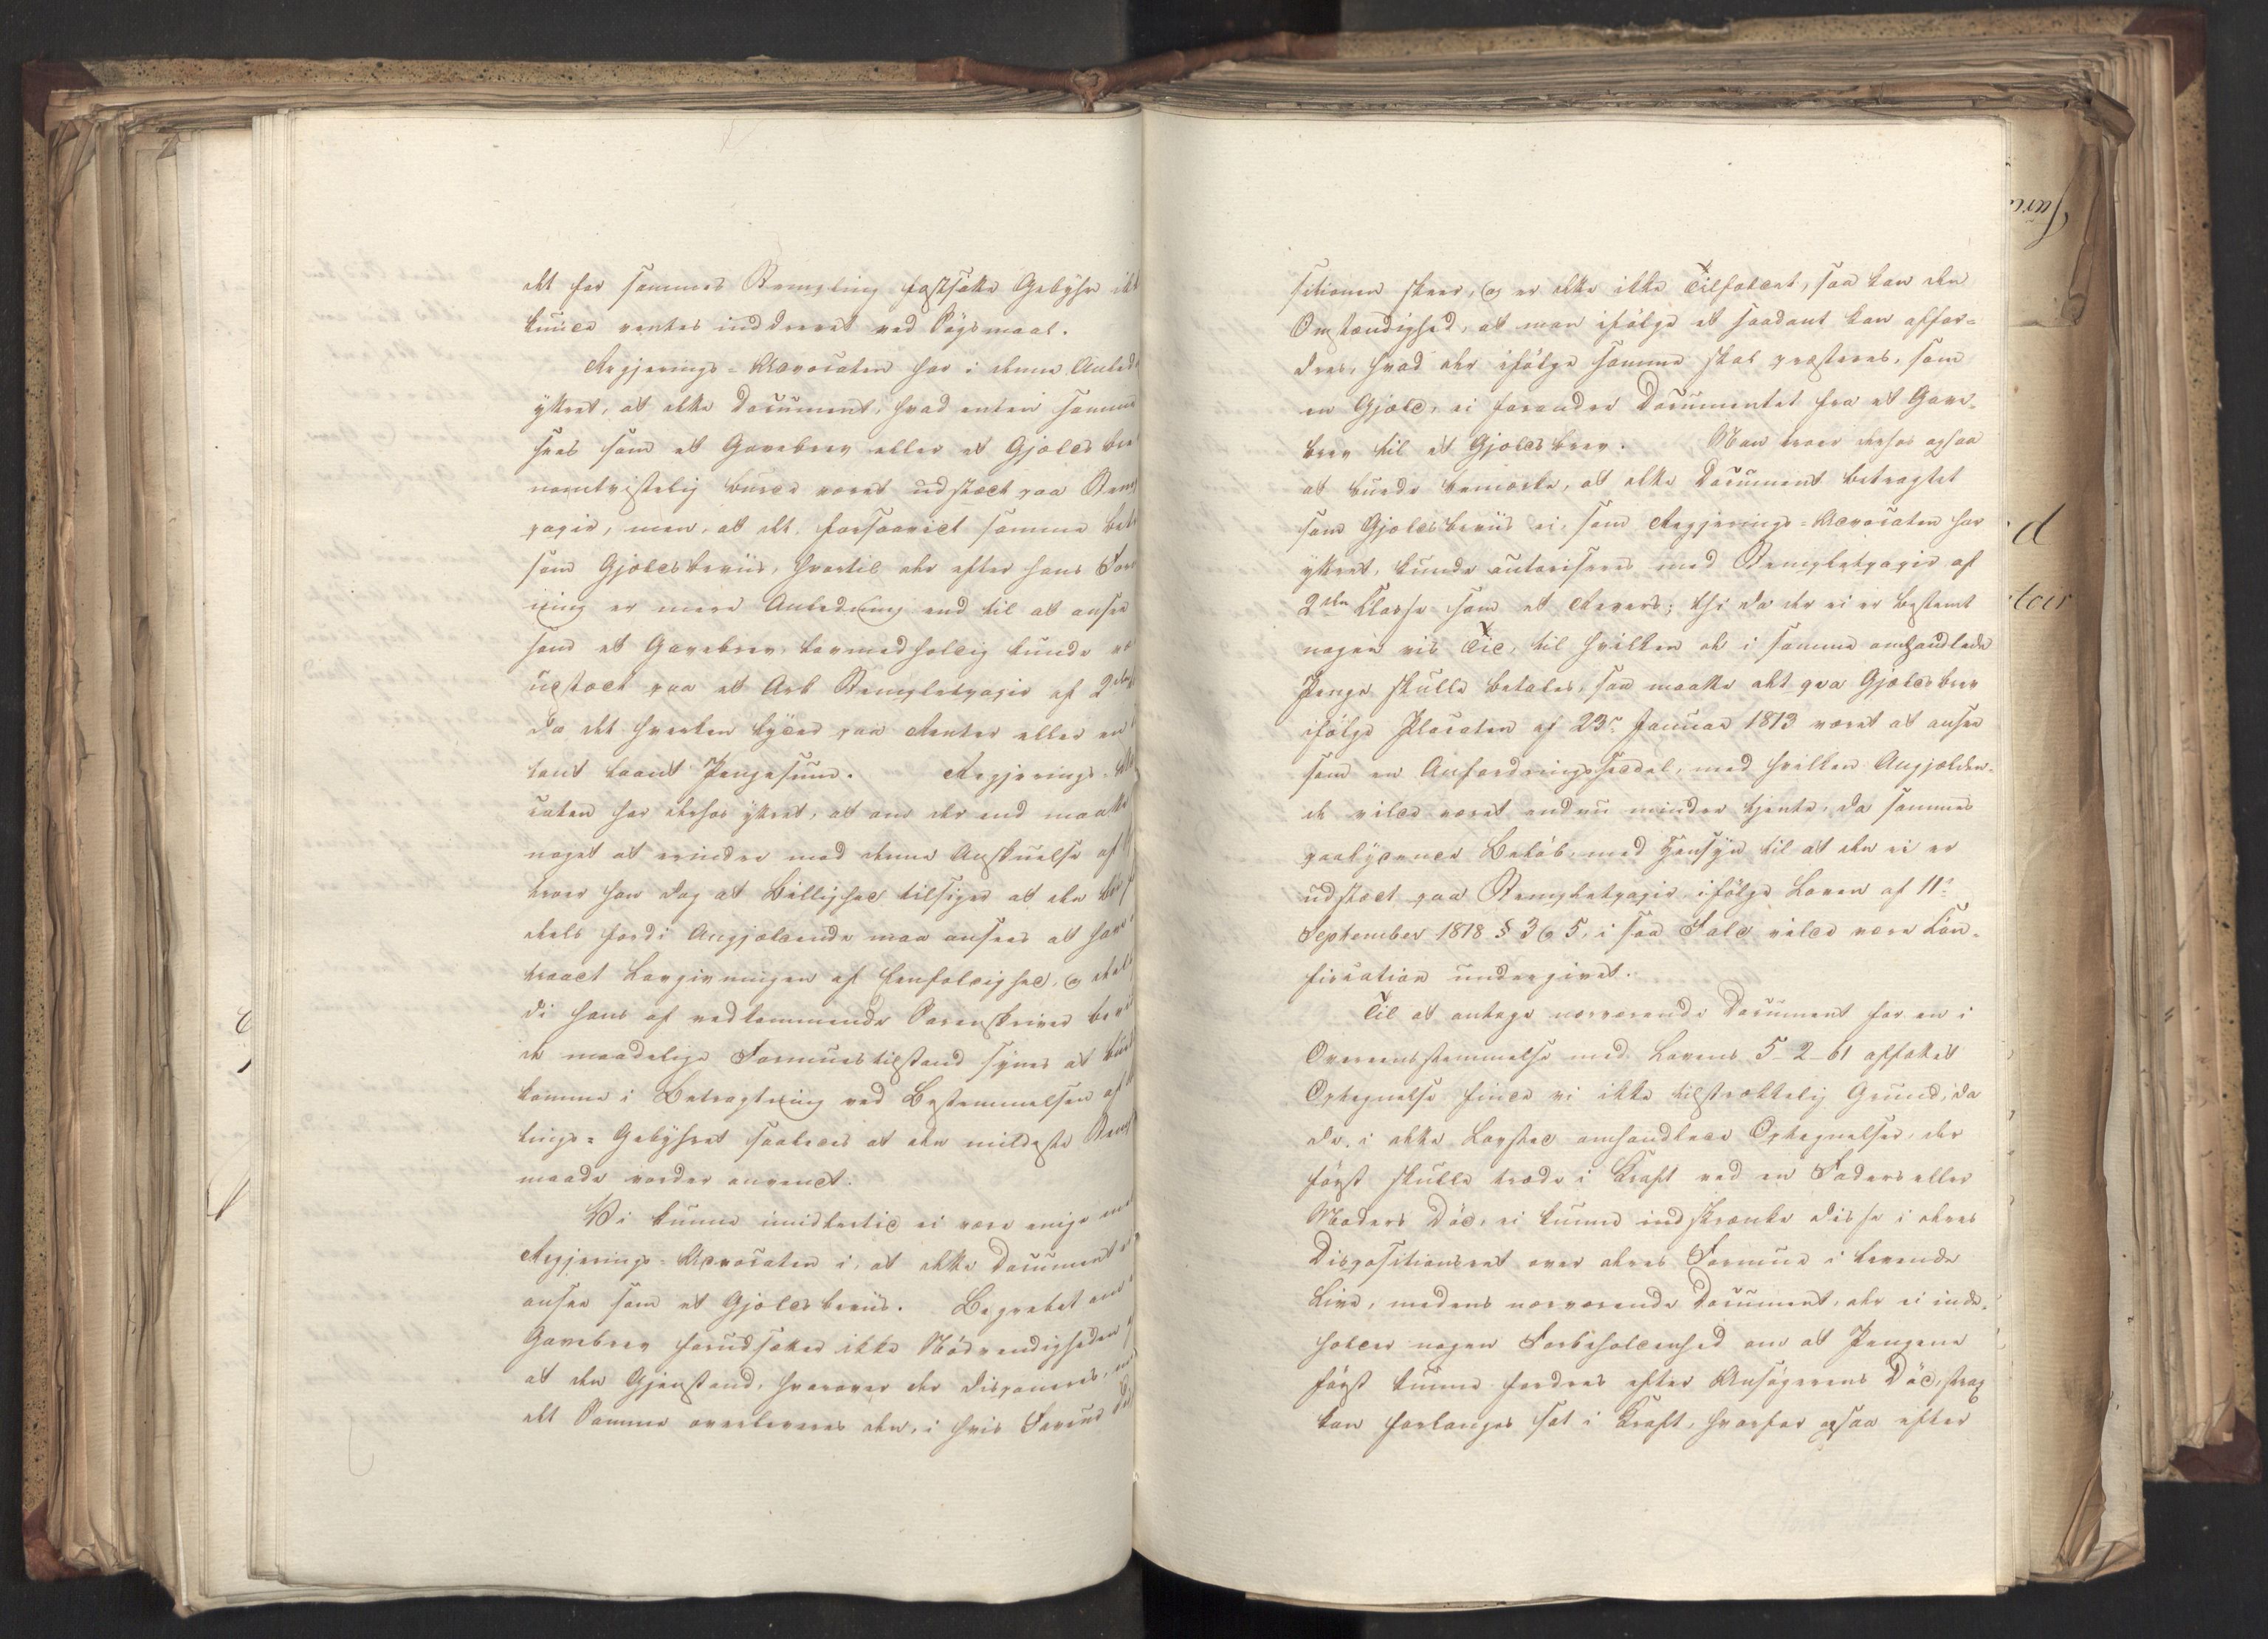 det for sammes Stempling fastsatte Gebyhr ikke
kunde ventes inddrevet ved Søgsmaal.
Regjerings-Advocaten har i denne Anled
yttret, at dette Document, hvad enten samme
sees som et Gavebrev eller et Gjældsbe
uomtvistelig burde været udstædt paa Stemp
papir, men, at det, forsaavidt samme bet
som Gjældsbeviis, hvortil der efter hans For
ning er mere Anledning end til at ansee
som et Gavebrev, lovmedholdig kunde væ
udstædt paa et Ark Stempletpapir af 2den
da det hverken lyder paa Renter eller en
laant Pengesum. Regjerings-Ad
caten har derhos yttret, at om der end maatte
noget at erindre mod denne Anskuelse af
troer han dog at Billighed tilsiger at den
deels fordi Angjældende maa ansees at have
traadt Lovgivningen af Eenfoldighed, og deels
di hans af vedkommende Sorenskriver bevid
de maadelige Formuestilstand synes at burde
komme i Betragtning ved Bestemmelsen af
lings-Gebyhret saaledes at den mildeste Stemp
maade vorder anvendt.
Vi kunne imidlertid ei være enige med
Regjerings-Advocaten i, at dette Document er
ansee som et Gjældsbeviis. Begrebet om
Gavebrev forudsætter ikke Nødvendigheden af
at den Gjenstand, hvorover der disponeres,
det Samme overleveres den, i hvis Faveur
sitionen skeer, og er dette ikke Tilfældet, saa kan den
Omstændighed, at man ifølge et saadant kan affor-
dres, hvad der ifølge samme skal præsteres, som
en Gjæld, ei forandre Documentet fra et Gave-
brev til et Gjældsbrev. Man troer derhos ogsaa
at burde bemærke, at dette Document betragtet
som Gjældsbeviis ei, som Regjerings-Advocaten har
yttret, kunde autoriseres med Stempletpapir af
2den Classe som et Revers; thi da der ei er bestemt
nogen vis Tid, til hvilken de i samme omhandlede
Penge skulle betales, saa maatte det qva Gjældsbrev
ifølge Placaten af 23de Januar 1813 været at ansee
som en Anfordringsseddel, med hvilken Angjælden-
de vilde været endnu mindre tjent, da sammes
paalydende Beløb, med Hensyn til at den ei er
udstædt paa Stempletpapir ifølge Loven af 11te
September 1818 § 3 og 5, i saa Fald vilde være Con-
fiscation undergivet.
Til at antage nærværende Document for en i
Overeensstemmelse med Lovens 5-2-61 affattet
Optegnelse finde vi ikke tilstrækkelig Grund, da
de, i dette Lovsted omhandlede Optegnelser, der
først skulle træde i Kraft ved en Faders eller
Moders Død, ei kunne indskrænke disse i deres
Dispositionsret over deres Formue i levende
Live, medens nærværende Document, der ei inde-
holder nogen Forbeholdenhed om at Pengene
først kunne fordres efter Ansøgerens Død, strax
kan forlanges sat i Kraft, hvorfor ogsaa efter